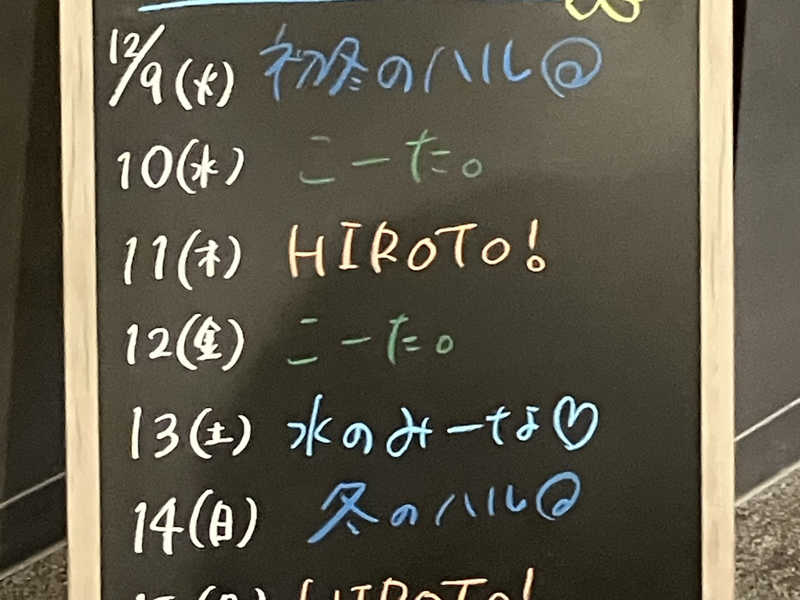 12/9(火) 初冬のハル@
10(水) こーた。
11(木) HIROTO!
12(金) こーた。
13(土) 水のみーなよ♡
14(日) 冬のハル@
HIROTO!